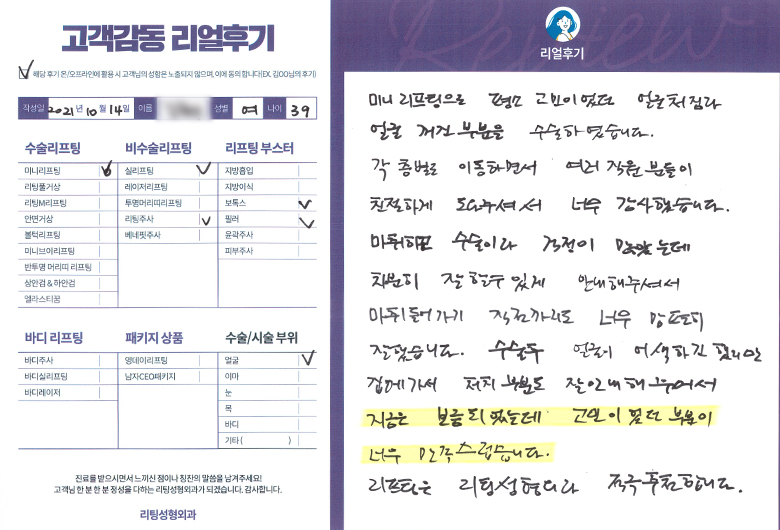 고객감동 리얼후기
해당 후기 온/오프라인에 활용 시 고객님의 성함은 노출되지 않으며, 이에 동의 합니다(EX. 김OO님의 후기)
작성일 2021년 10월 14일 이름 성별 여 나이 39
수술리프팅 비수술리프팅 리프팅 부스터
미니리프팅 실리프팅 지방흡입
리팅풀거상 레이저리프팅 지방이식
리팅M리프팅 투명머리띠리프팅 보톡스
안면거상 리팅주사 필러
볼턱리프팅 베네핏주사 윤곽주사
미니브이리프팅 피부주사
반투명 머리띠 리프팅
상안검 & 하안검
엘라스티꿈
바디 리프팅 패키지 상품 수술/시술 부위
바디주사 영데이리프팅 얼굴
바디실리프팅 남자CEO패키지 이마
바디레이저 눈
목
바디
기타 ( )
진료를 받으시면서 느끼신 점이나 칭찬의 말씀을 남겨주세요!
고객님 한 분 한 분 정성을 다하는 리팅성형외과가 되겠습니다. 감사합니다.
리팅성형외과
Review
리얼후기
미니 리프팅으로 평소 고민이었던 얼굴처짐과
얼굴 꺼진 부분을 수술하였습니다.
각 층별로 이동하면서 여러 직원 분들이
친절하게 도와주셔서 너무 감사했습니다.
마취하고 수술이라 걱정이 많았는데
차분히 잘 할수 있게 안내해주셔서
마취 들어가기 직전까지도 너무 편히
잘했습니다. 수술후 얼굴이 어색하긴 했지만
집에 가서 처치 부분도 잘 안내해 주셔서
지금은 보름되었는데 고민이 였던 부분이
너무 만족스럽습니다.
리프팅은 리팅성형외과 적극추천합니다.